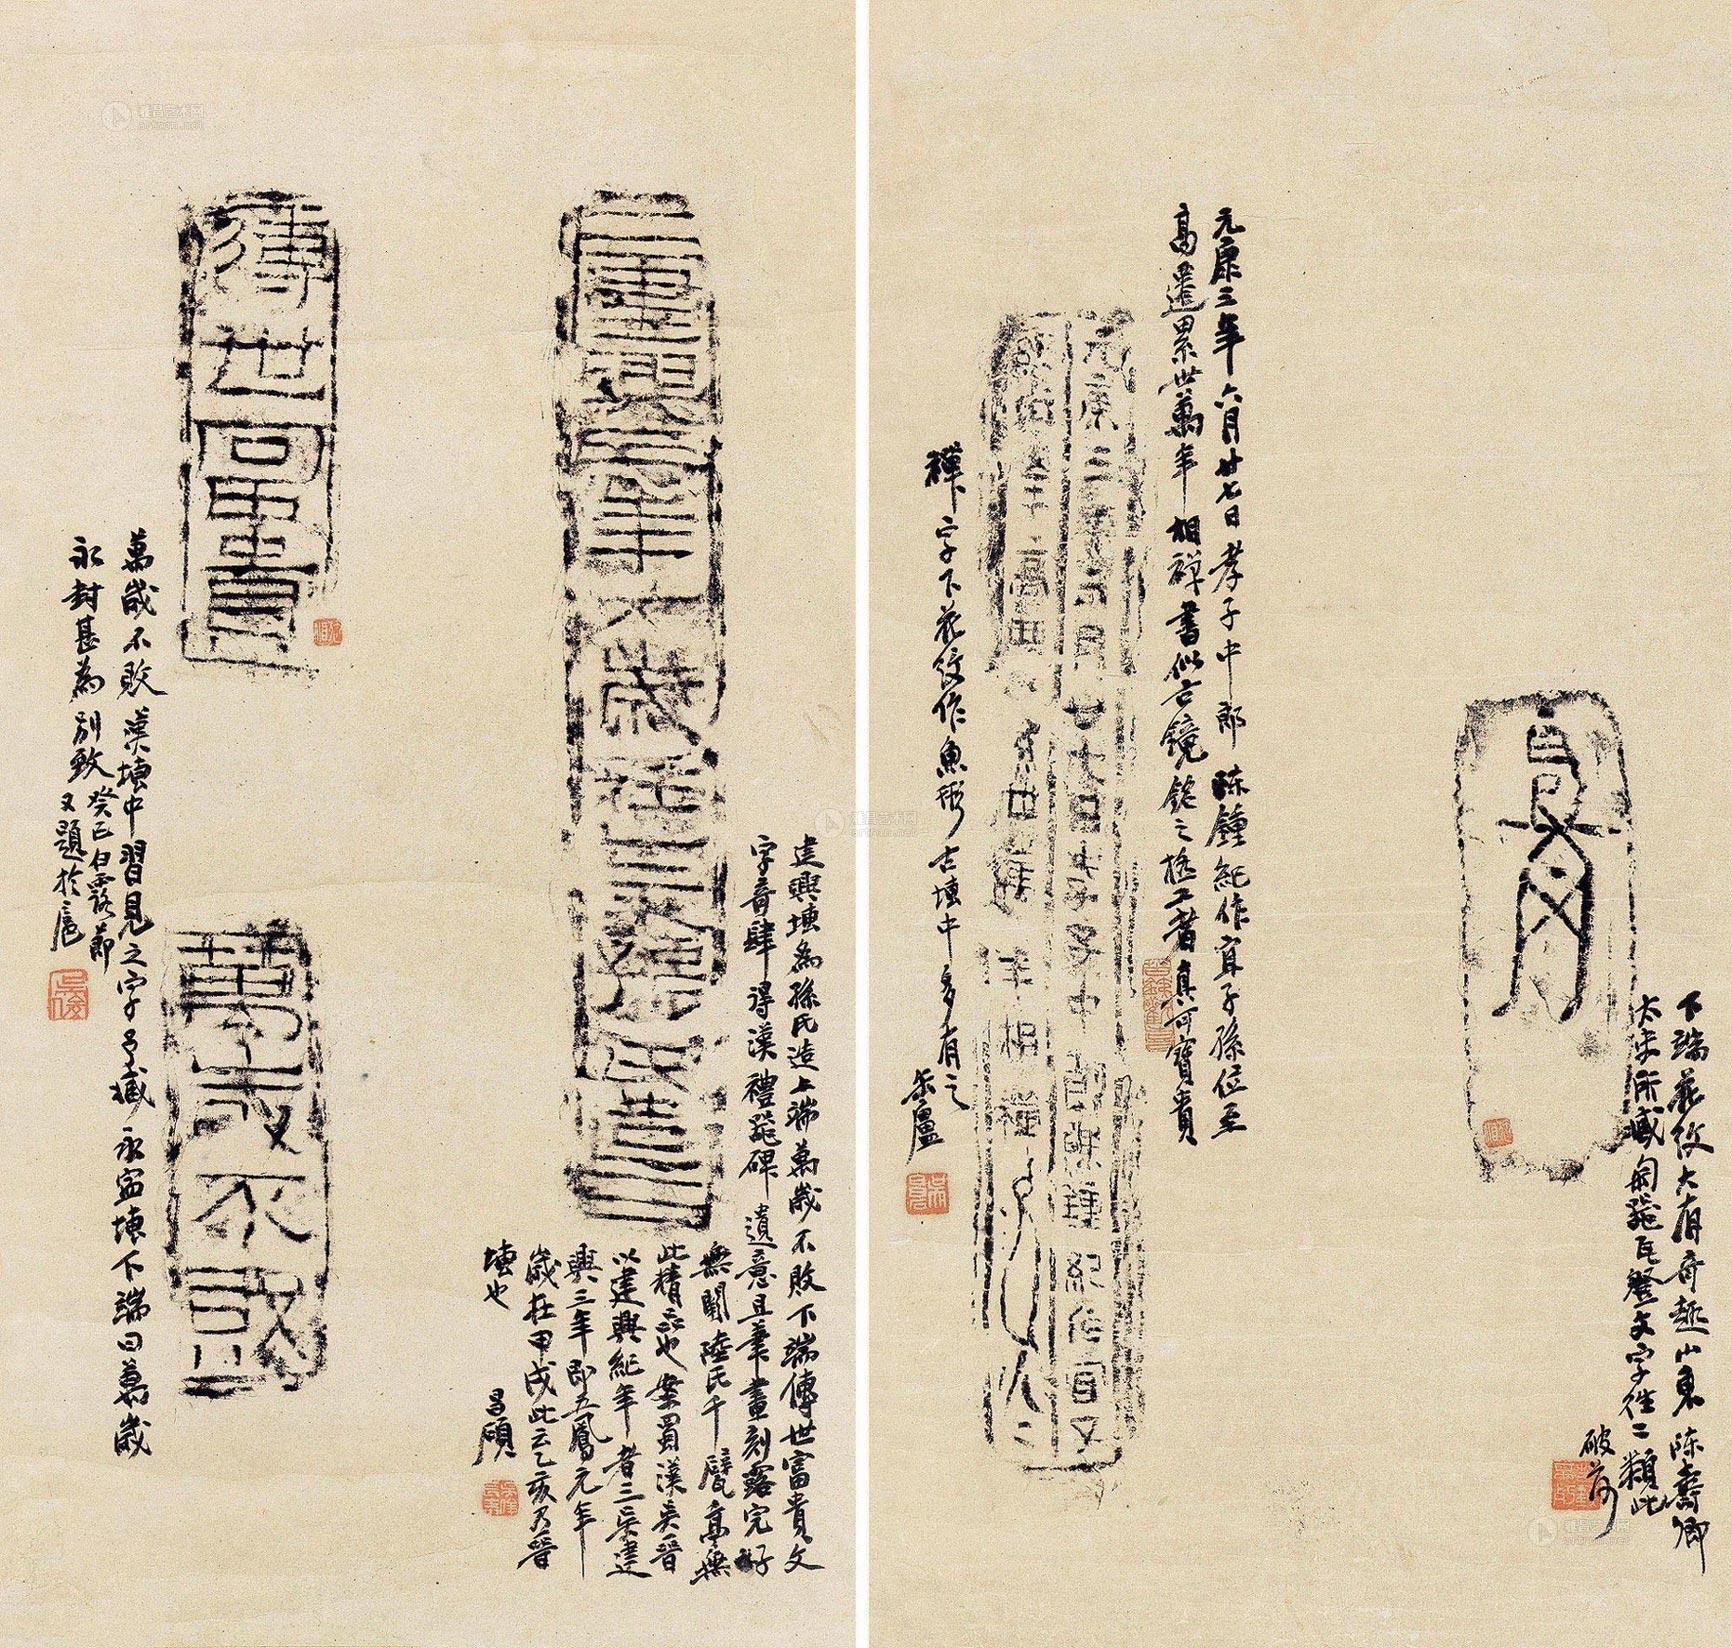 下端花紋大有奇趣山東陳壽卿
太史所藏匋器瓦登文字往二類此
破荷
元康三年六月廿七日孝子中郎陳鍾紀作宜子孫位至
高遷累世萬年相禪書似古鏡銘之極工者真可寶貴
元康三年六月廿七日孝子中郎陳鍾紀作宜子
禪下字下花紋作魚形古塼中多有之
缶廬
建興三年大歲在乙亥孫氏造
建興塼為孫氏造上端萬歲不敗下端傳世富貴文
字奇肆得漢禮器碑遺意且筆畫刻露完好
無闕陸氏千甓亭無
此精品也案蜀漢吳晉
以建興紀年者三吳建
興三年即五鳳元年
歲在甲戌此云乙亥乃晉
塼也
昌碩
傳世富貴
萬歲不敗
萬歲不敗漢塼中習見之字予藏永寧塼下端曰萬歲
永封甚為別致癸巳白露節
又題於滬